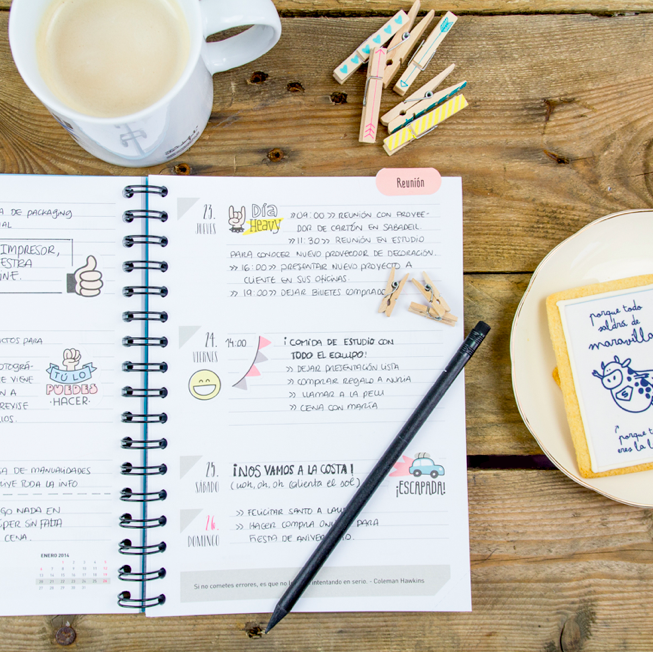 A DE PACKAGING
AL
IMPRESOR,
ESTRA
NE.
CTOS PARA
OTOGRÁ-
E VIENE
N A
REVISE
IOS.
TÚ LO
PUEDES
·HACER·
SA DE MANUALIDADES
UYE TODA LA INFO
GO NADA EN
ÚPER SIN FALTA
CENA.
ENERO 2014
Reunión
23.
JUEVES
DÍA
HEAVY
09:00 >> REUNIÓN CON PROVEE-
DOR DE CARTÓN EN SABADELL.
>> 11:30 >> REUNIÓN EN ESTUDIO
PARA CONOCER NUEVO PROVEEDOR DE DECORACIÓN.
>> 16:00 >> PRESENTAR NUEVO PROYECTO A
CLIENTE EN SUS OFICINAS
>> 19:00 >> DEJAR BILLETES COMPRADO
24.
VIERNES
14:00.
¡COMIDA DE ESTUDIO CON
TODO EL EQUIPO!
>> DEJAR PRESENTACIÓN LISTA
>> COMPRAR REGALO A NURIA
>> LLAMAR A LA PELU
>> CENA CON MARÍA
25.
SÁBADO
¡NOS VAMOS A LA COSTA!
(uoh, oh, oh calienta el sol)
¡ESCAPADA!
26.
DOMINGO
>> FELICITAR SANTO A
>> HACER COMPRA PARA
FIESTA DE
Si no cometes errores, es que no lo intentando en serio. - Coleman Hawkins
porque todo
saldrá de
maravilla
porque t
eres la